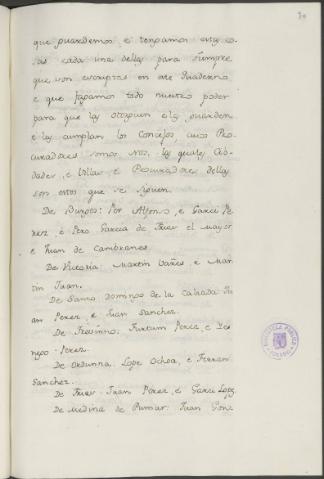 que guardemos, e tengamos estas co-
sas cada una dellas para siempre
que son escriptas en este Quaderno
e que fagamos todo nuestro poder
para que las otorguen e las guarden
e las cumplan los Concejos, cuios Pro-
curadores somos nos, las quales Cib-
dades, e Villas e Procuradores dellas
son estos que se siguen.
De Burgos: Por Alfonso, e Garci Pe-
rez, e Pero Garcia de Frias el mayor
e Juan de Cambranes.
De Victoria Martin Yañes e Mar-
tin Juan.
De Santo Domingo de la Calzada Ju-
an Perez, e Juan Sanchez.
De Trevinno: Furtum Perez, e Die-
ngo: Perez.
De Ordunna, Lope Ochoa, e Ferran
Sanchez.
De Frias: Juan Perez, e Garci Lopez
De Medina de Pumar: Juan Gonz